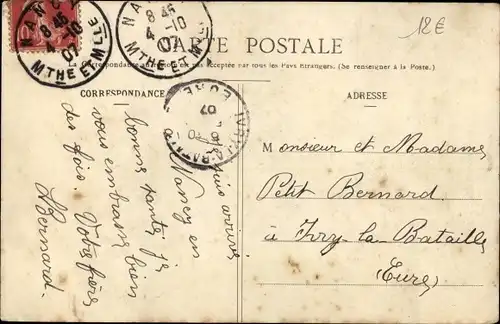 NANCY
8 45
4-10
07
MTHE ET MLLE
NANCY
8 45
4-10
07
MTHE ET MLLE
12€
CARTE POSTALE
La Correspondance au recto n'est pas acceptée par tous les Pays étrangers. (Se renseigner à la Poste.)
CORRESPONDANCE
ADRESSE
IVRY-LA-BATAILLE
EURE
07
suis arrivé
à Nancy en
bonne santé je
vous embrasse bien
des fois. Votre frère
Bernard
Monsieur et Madame
Petit Bernard
à Ivry-la-Bataille
(Eure)